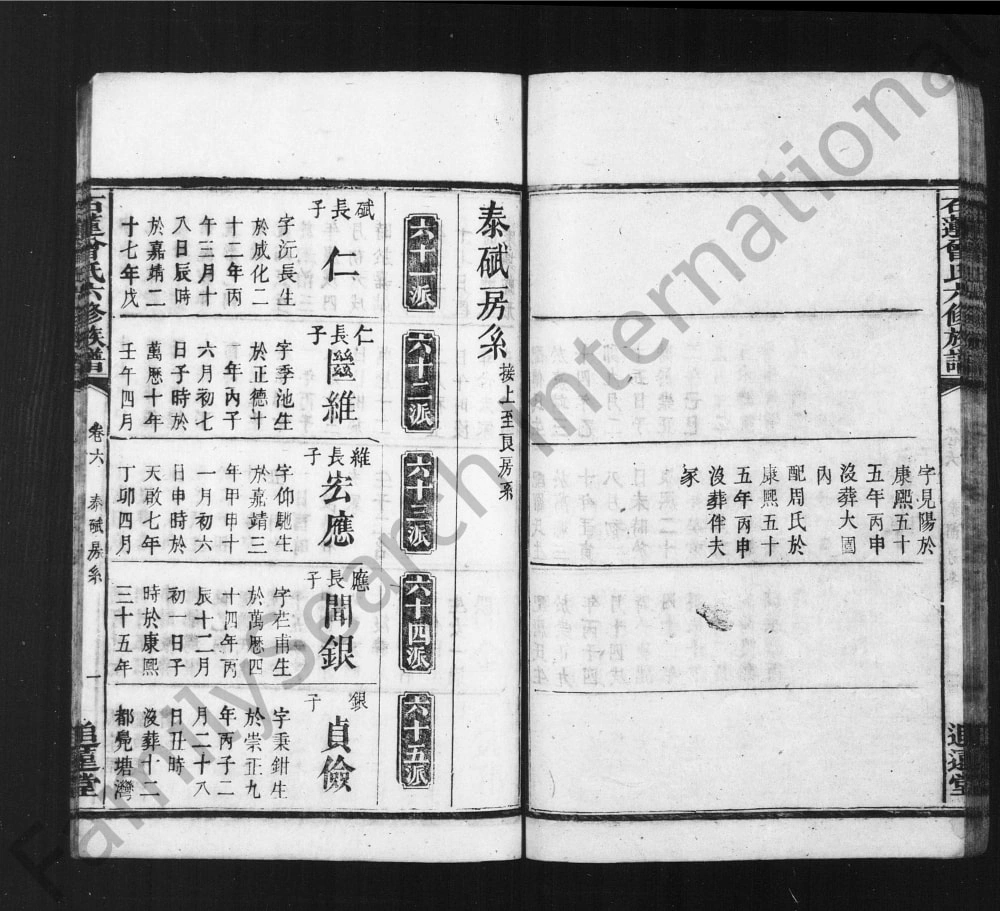 字見陽於
康熙五十
五年丙申
沒葬大園
內
配周氏於
康熙五十
五年丙申
沒葬伴夫
家
追遠堂
泰碔房系 接上至良房系
六十一派
六十二派
六十三派
六十四派
六十五派
碔長子
仁
字沅長生
於成化二
十二年丙
午三月十
八日辰時
於嘉靖二
十七年戊
仁長子
維
字季池生
於正德十
一年丙子
六月初七
日子時於
萬曆十年
壬午四月
維長子
宏應
字仰馳生
於嘉靖三
年甲申十
一月初六
日申時於
天啟七年
丁卯四月
應長子
聞銀
字在甫生
於萬曆四
十四年丙
辰十二月
初一日子
時於康熙
三十五年
銀子
貞儉
字秉鉗生
於崇正九
年丙子二
月二十八
日丑時
沒葬十二
都凫塘灣
石蓮曾氏六修族譜
卷六
泰碔房系
一
追遠堂
FamilySearch International